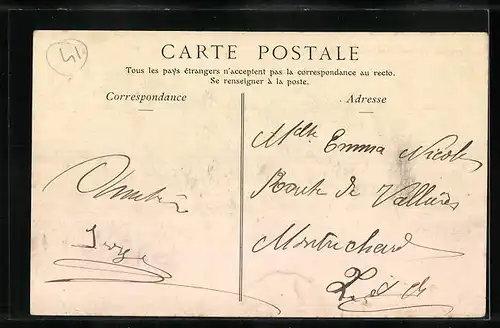 41
CARTE POSTALE
Tous les pays étrangers n'acceptent pas la correspondance au recto.
Se renseigner à la poste.
Correspondance
Adresse
Mlle Emma Nicolas
Route de Vallières
Montrichard
L. et Ch